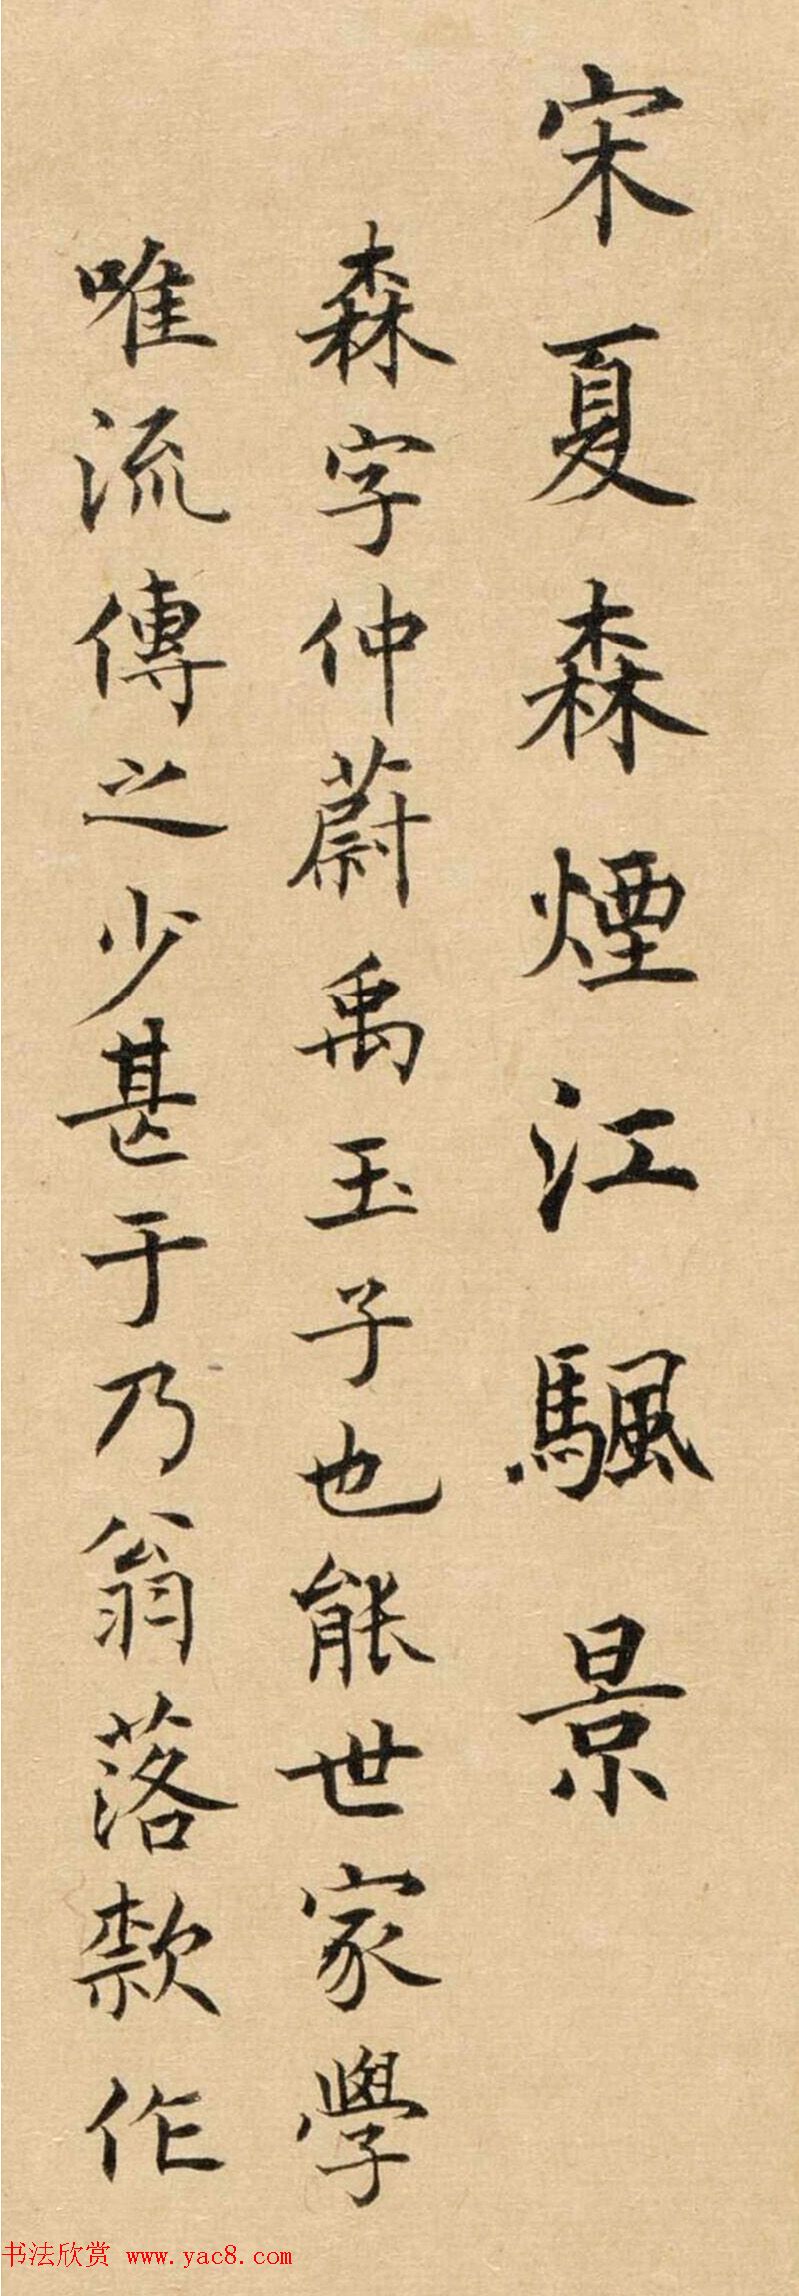 宋夏森煙江颿景
森字仲蔚禹玉子也能世家學
唯流傳之少甚于乃翁落款作
书法欣赏 www.yac8.com